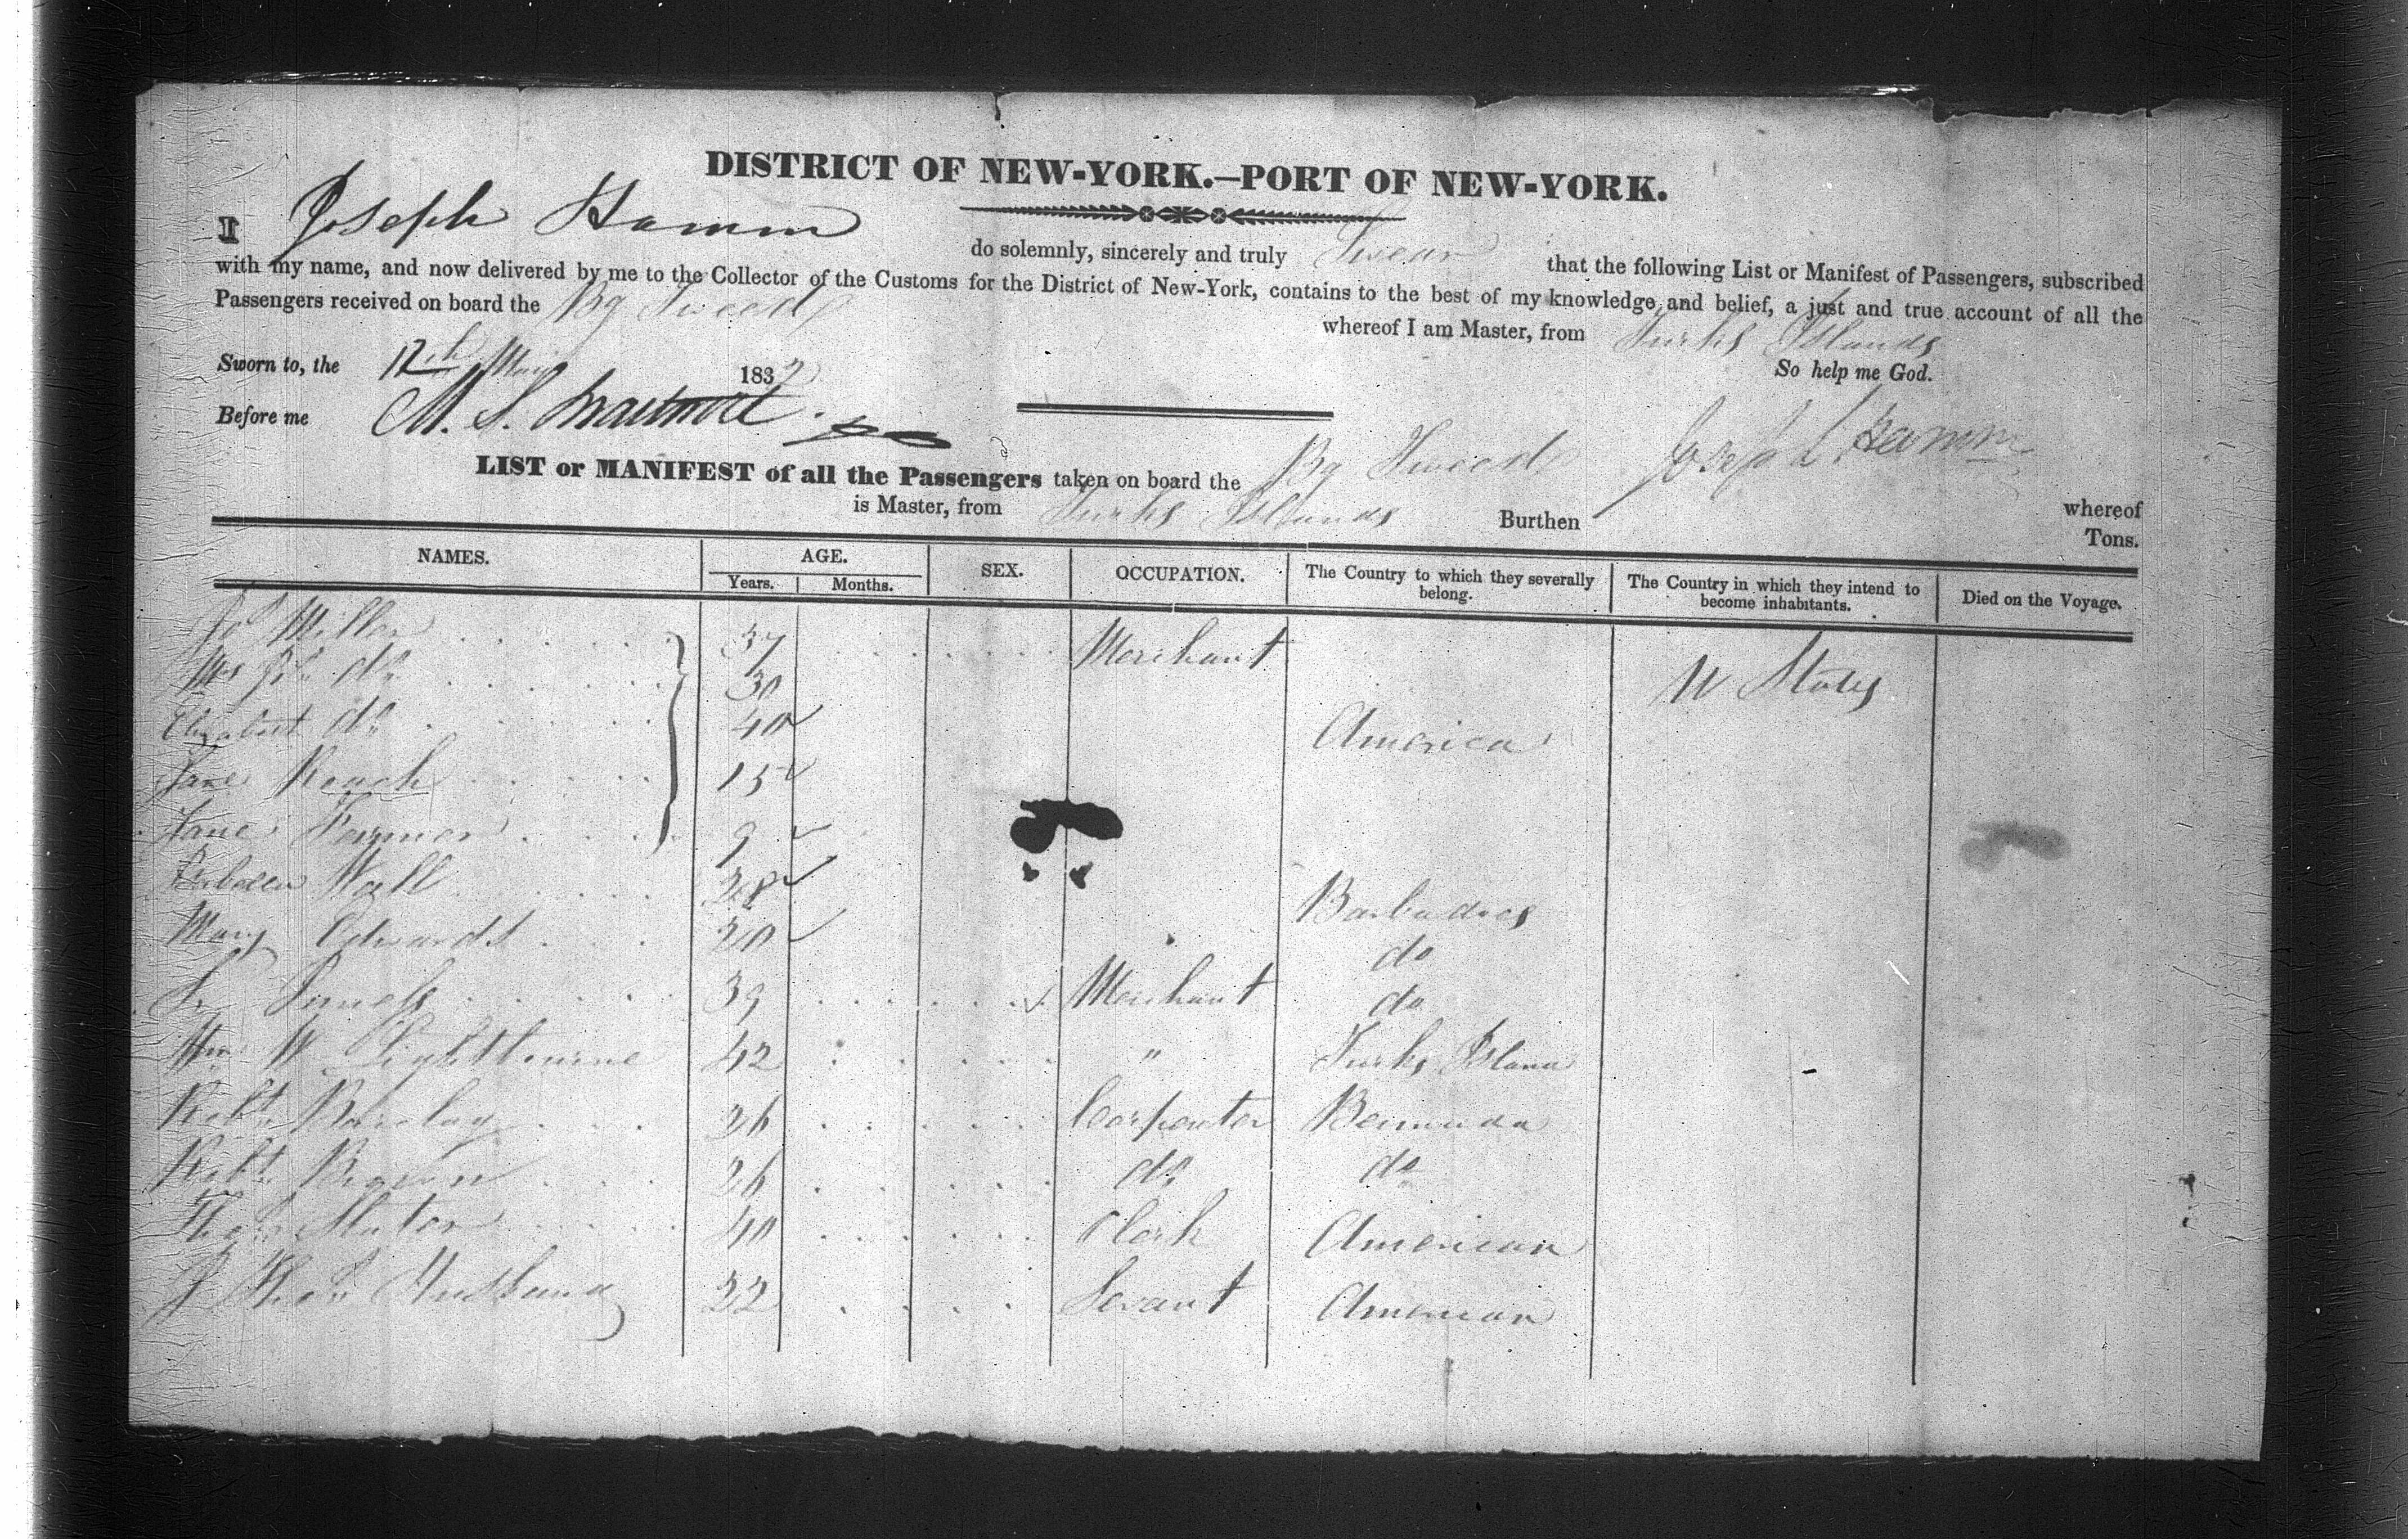 DISTRICT OF NEW-YORK.—PORT OF NEW-YORK.
I Joseph Hamm do solemnly, sincerely and truly Swear that the following List or Manifest of Passengers, subscribed
with my name, and now delivered by me to the Collector of the Customs for the District of New-York, contains to the best of my knowledge and belief, a just and true account of all the
Passengers received on board the Bg Tweed whereof I am Master, from Turks Islands
Sworn to, the 12th May 1832 So help me God.
Before me M. S. Joseph Hamm
LIST or MANIFEST of all the Passengers taken on board the Bg Tweed whereof
is Master, from Turks Islands Burthen Tons.
NAMES. AGE. SEX. OCCUPATION. The Country to which they severally belong. The Country in which they intend to become inhabitants. Died on the Voyage.
Years. Months.
Miller 37 Merchant U States
Mrs do 30
do 40 America
Jane Roach 15
Jane Farmer 9
Wall 28 Barbadoes
Mary Edwards 20 do
39 Merchant do
Wm W Lightbourne 42 " Turks Island
Robt Barclay 26 Carpenter Bermuda
Robt Brown 26 do do
Slator 40 Clerk American
J Thos Husband 22 Servant American